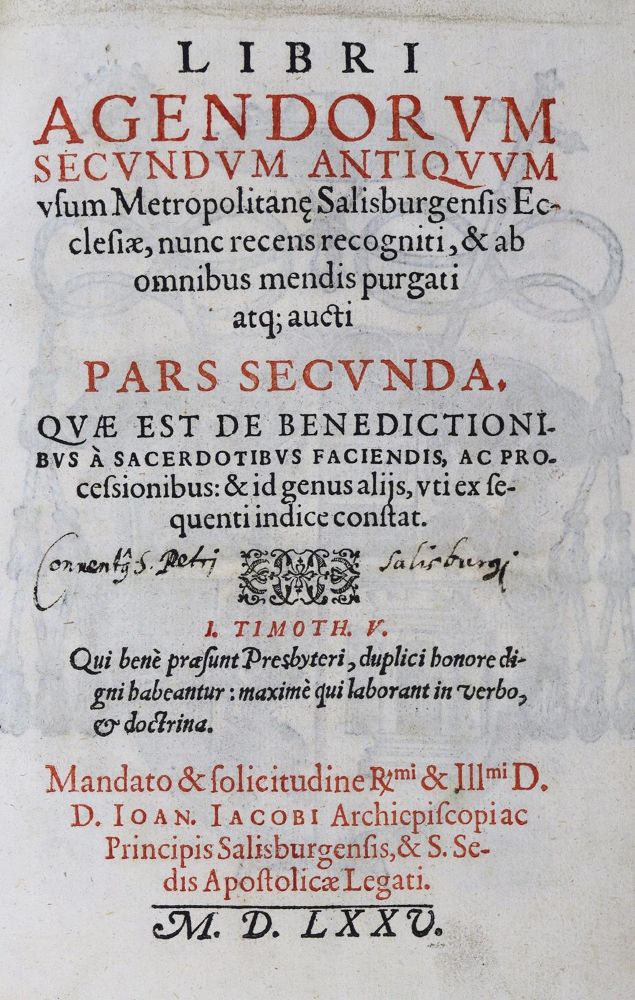 LIBRI
AGENDORVM
SECVNDVM ANTIQVVM
vſum Metropolitanę Salisburgenſis Ec-
cleſiæ, nunc recens recogniti, & ab
omnibus mendis purgati
atq; aucti
PARS SECVNDA.
QVÆ EST DE BENEDICTIONI-
BVS À SACERDOTIBVS FACIENDIS, AC PRO-
ceſsionibus: & id genus alijs, vti ex ſe-
quenti indice conſtat.
Conventꝯ S. Petri Salisburgi
I. TIMOTH. V.
Qui benè præſunt Presbyteri, duplici honore di-
gni habeantur: maximè qui laborant in verbo,
& doctrina.
Mandato & ſolicitudine Rmi & Illmi D.
D. IOAN. IACOBI Archiepiſcopi ac
Principis Salisburgenſis, & S. Se-
dis Apoſtolicæ Legati.
M. D. LXXV.